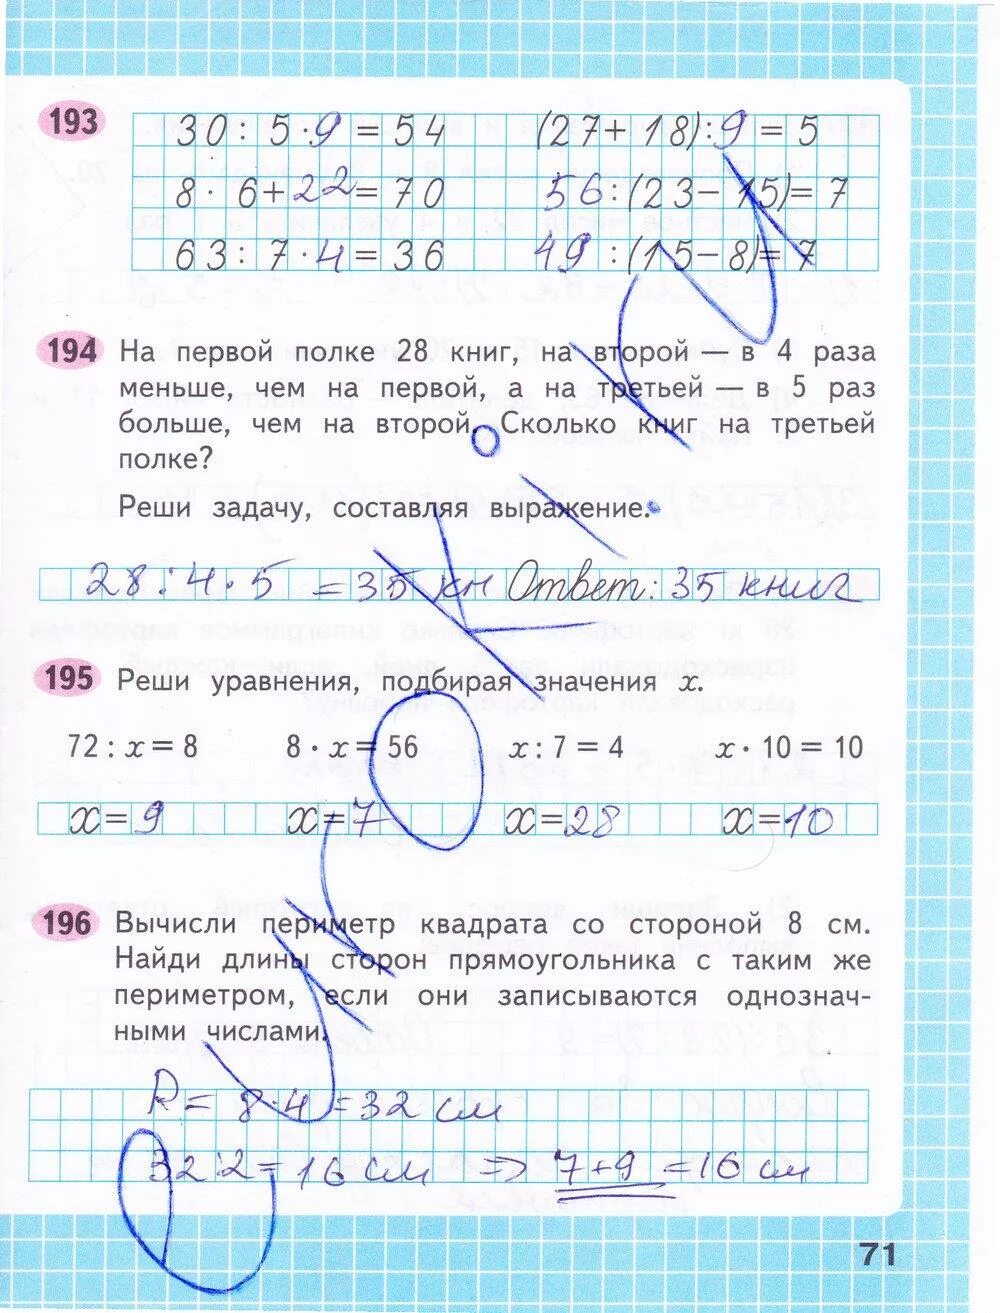 193
30 : 5 · 9 = 54 (27 + 18) : 9 = 5
8 · 6 + 22 = 70 56 : (23 − 15) = 7
63 : 7 · 4 = 36 49 : (15 − 8) = 7
194 На первой полке 28 книг, на второй — в 4 раза
меньше, чем на первой, а на третьей — в 5 раз
больше, чем на второй. Сколько книг на третьей
полке?
Реши задачу, составляя выражение.
28 : 4 · 5 = 35 кн Ответ: 35 книг
195 Реши уравнения, подбирая значения x.
72 : x = 8 8 · x = 56 x : 7 = 4 x · 10 = 10
x = 9 x = 7 x = 28 x = 10
196 Вычисли периметр квадрата со стороной 8 см.
Найди длины сторон прямоугольника с таким же
периметром, если они записываются однознач-
ными числами.
P = 8 · 4 = 32 см
32 : 2 = 16 см ⇒ 7 + 9 = 16 см
71